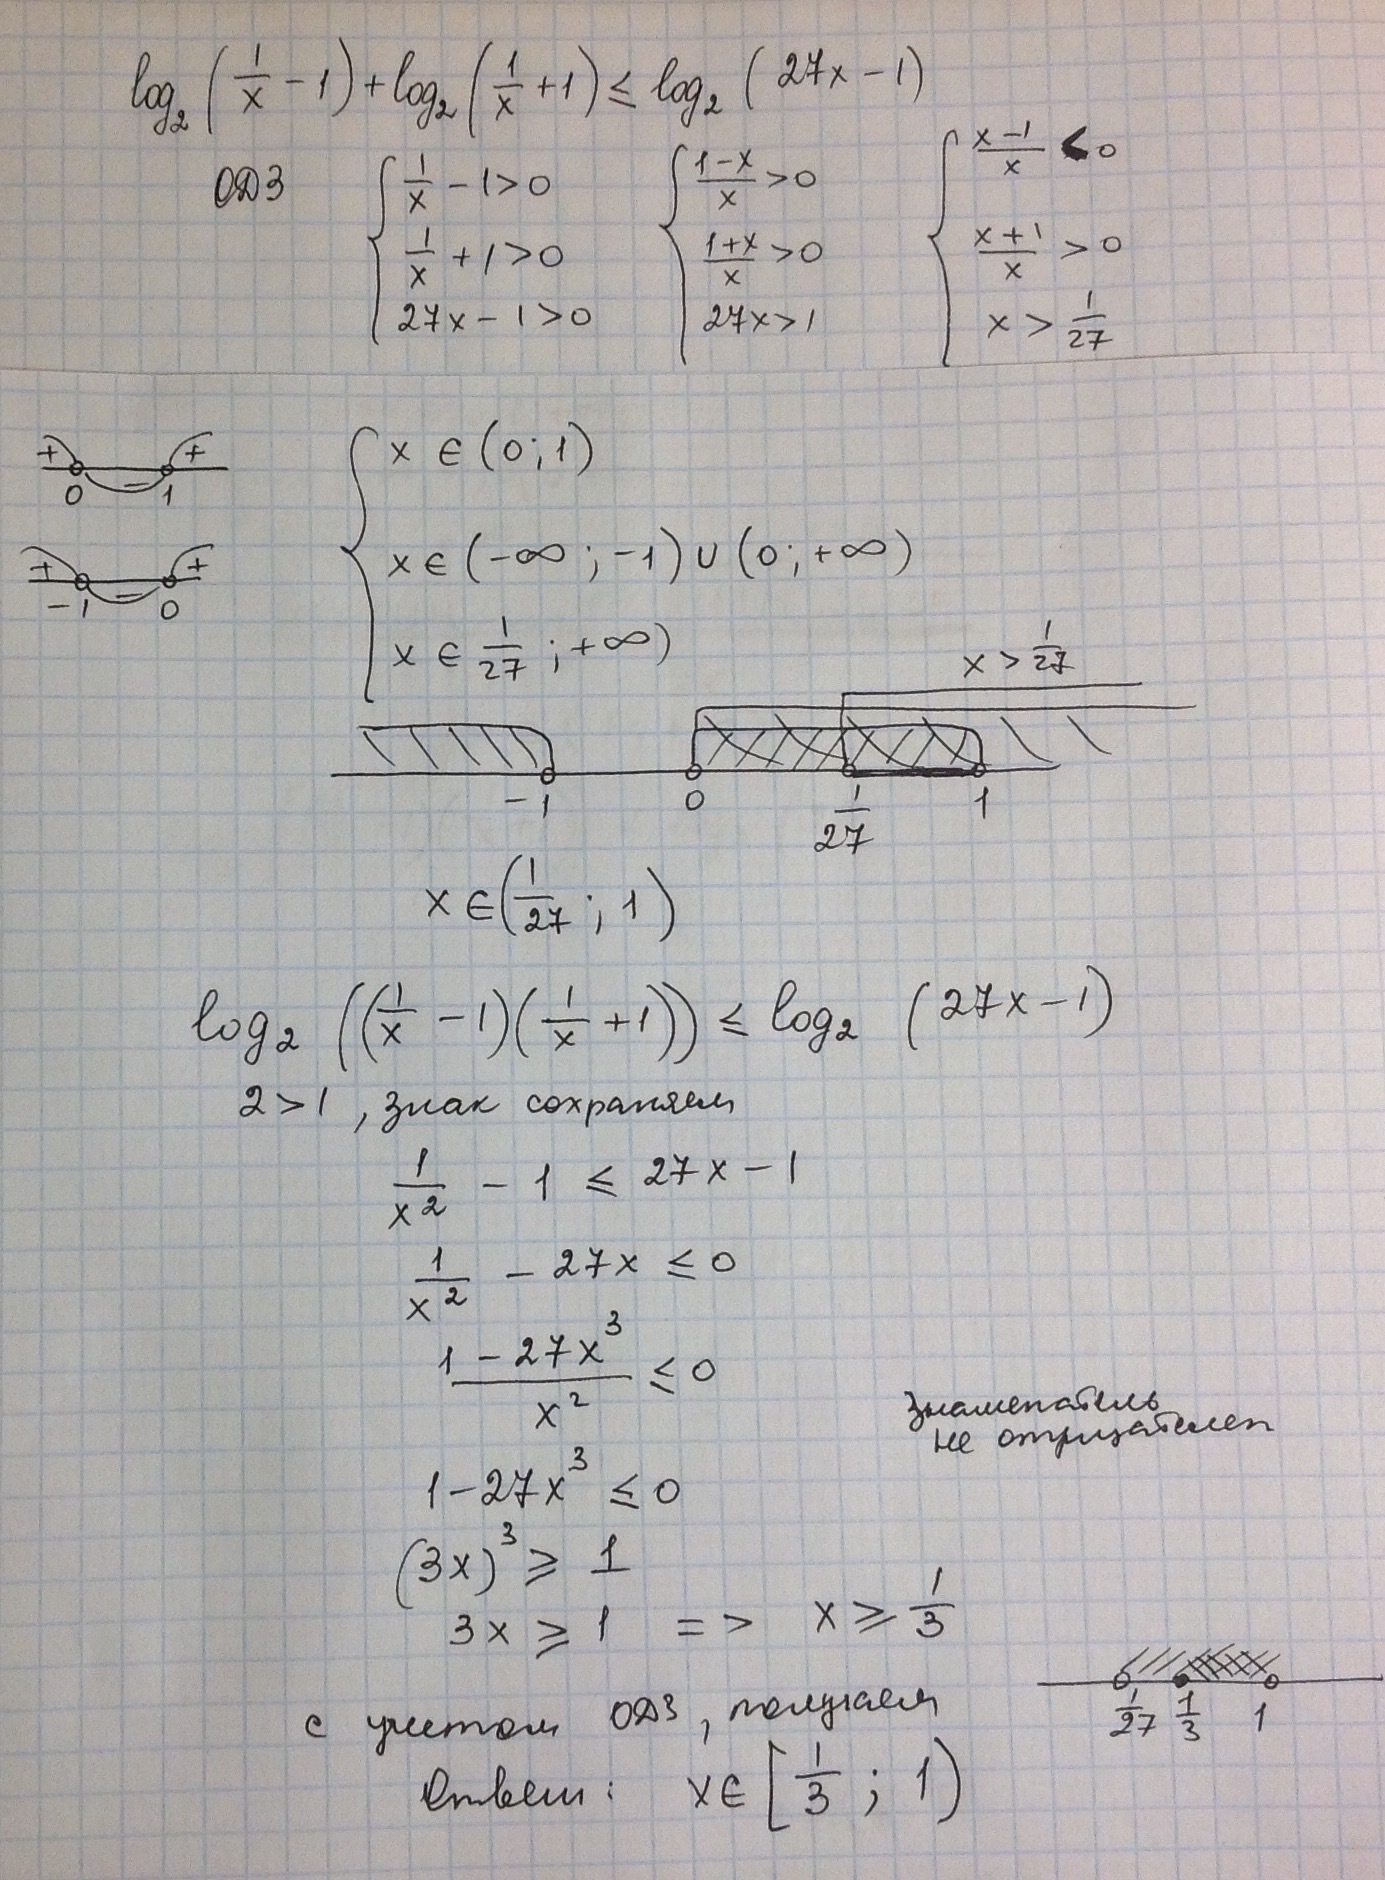 log₂(1/x − 1) + log₂(1/x + 1) ≤ log₂(27x − 1)
ОДЗ
{ 1/x − 1 > 0
1/x + 1 > 0
27x − 1 > 0
{ (1−x)/x > 0
(1+x)/x > 0
27x > 1
{ (x−1)/x < 0
(x+1)/x > 0
x > 1/27
+ − +
0 1
+ − +
−1 0
{ x ∈ (0; 1)
x ∈ (−∞; −1) ∪ (0; +∞)
x ∈ 1/27; +∞)
x > 1/27
−1 0 1/27 1
x ∈ (1/27; 1)
log₂((1/x − 1)(1/x + 1)) ≤ log₂(27x − 1)
2 > 1, знак сохраняем
1/x² − 1 ≤ 27x − 1
1/x² − 27x ≤ 0
(1 − 27x³)/x² ≤ 0
знаменатель
не отрицателен
1 − 27x³ ≤ 0
(3x)³ ≥ 1
3x ≥ 1 => x ≥ 1/3
1/27 1/3 1
с учетом ОДЗ, получаем
Ответ: x ∈ [1/3; 1)